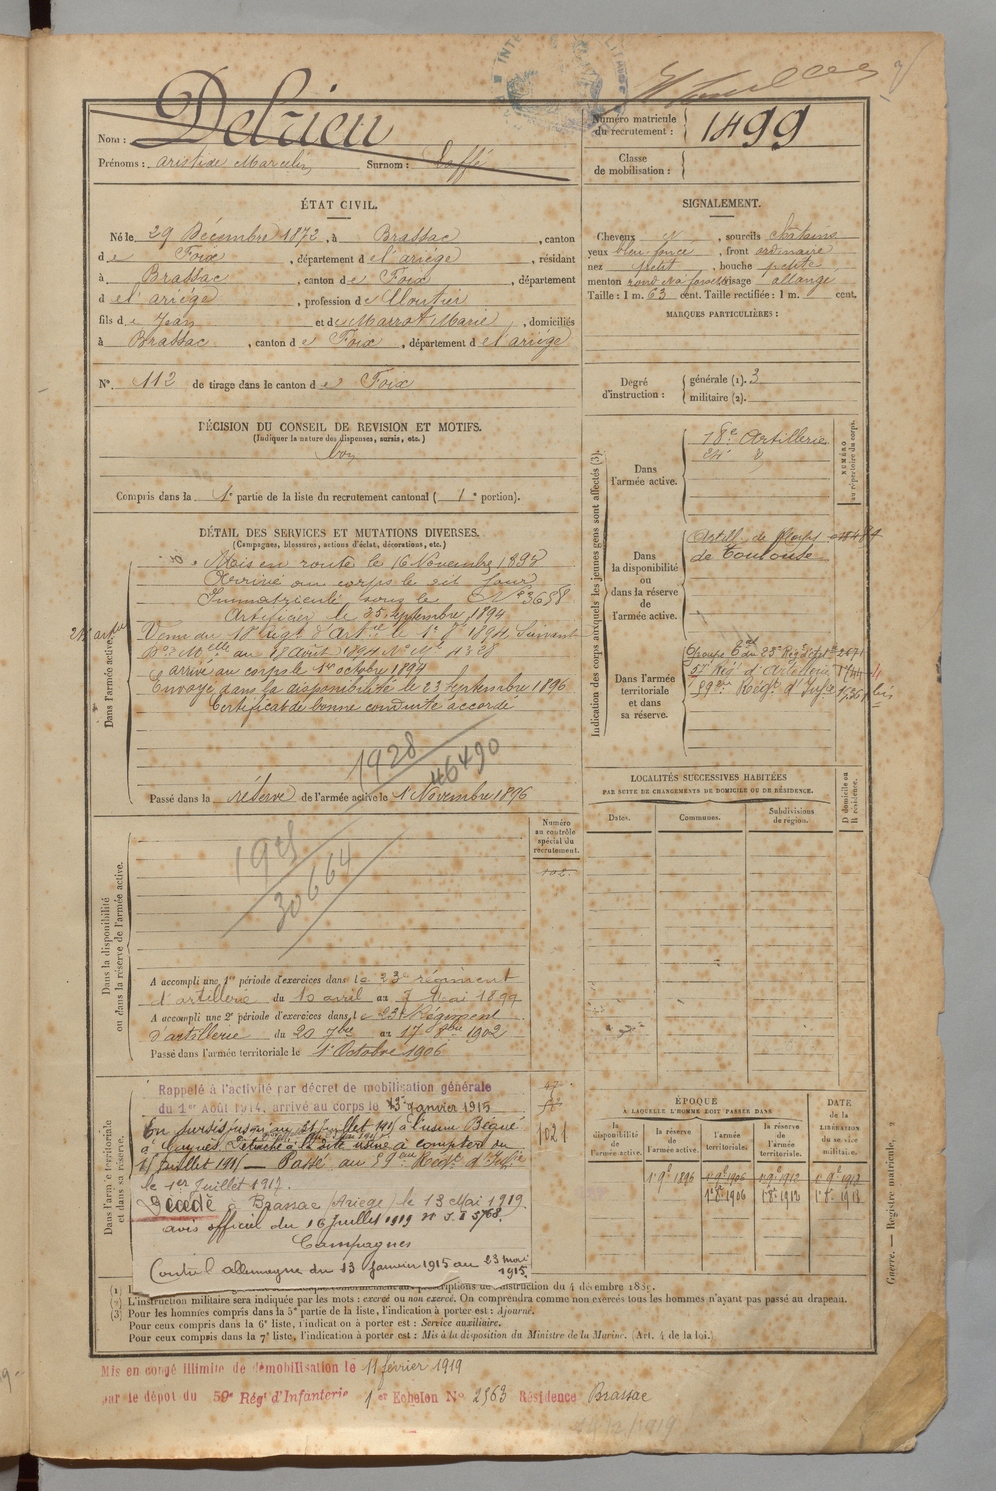 Nom : Delrieu
Prénoms : Aristide Marcelin Surnom : Laffé
Numéro matricule du recrutement : 1499
Classe de mobilisation :
ÉTAT CIVIL.
Né le 29 Décembre 1872, à Brassac, canton
de Foix, département de l'ariège, résidant
à Brassac, canton de Foix, département
de l'ariège, profession de Cloutier
fils de Jean et de Marrot Marie, domiciliés
à Brassac, canton de Foix, département de l'ariège
N° 112 de tirage dans le canton de Foix
SIGNALEMENT.
Cheveux et, sourcils châtains
yeux bleu foncé, front ordinaire
nez petit, bouche petite
menton rond visage allongé
Taille : 1 m. 63 cent. Taille rectifiée : 1 m. cent.
MARQUES PARTICULIÈRES :
Degré d'instruction : générale (1). 3
militaire (2).
DÉCISION DU CONSEIL DE REVISION ET MOTIFS.
(Indiquer la nature des dispenses, sursis, etc.)
bon
Compris dans la 1e partie de la liste du recrutement cantonal (1e portion).
DÉTAIL DES SERVICES ET MUTATIONS DIVERSES.
(Campagnes, blessures, actions d'éclat, décorations, etc.)
Dans l'armée active.
Mis en route le 16 Novembre 1893
Arrivé au corps le dit jour
Immatriculé sous le N° 3658
Artificier le 25 septembre 1894
Venu du 18e Régt d'Artie le 1er 8bre 1894 Suivant
Don Mlle du 18 Août 1894 N° Mle 4328
arrivé au corps le 1er octobre 1894
Envoyé dans la disponibilité le 23 Septembre 1896
Certificat de bonne conduite accordé
1928
46490
Passé dans la réserve de l'armée active le 1 Novembre 1896
Indication des corps auxquels les jeunes gens sont affectés (3).
NUMÉRO au répertoire du corps.
Dans l'armée active.
18e Artillerie
Dans la disponibilité ou dans la réserve de l'armée active.
Artill. de Corps
de Toulouse
Dans l'armée territoriale et dans sa réserve.
57e Rég d'Artillerie
59e Régt d'Infie
LOCALITÉS SUCCESSIVES HABITÉES
PAR SUITE DE CHANGEMENTS DE DOMICILE OU DE RÉSIDENCE.
Dates. Communes. Subdivisions de région. D domicile ou R résidence.
Numéro au contrôle spécial du recrutement.
102
Dans la disponibilité ou dans la réserve de l'armée active.
30664
A accompli une 1re période d'exercices dans le 23e régiment
d'artillerie du 10 avril au 7 Mai 1899
A accompli une 2e période d'exercices dans le 23e Régiment
d'artillerie du 20 7bre au 17 8bre 1902
Passé dans l'armée territoriale le 1er Octobre 1906
Dans l'armée territoriale et dans sa réserve.
1021
Rappelé à l'activité par décret de mobilisation générale
du 1er Août 1914, arrivé au corps le 13 Janvier 1915
En sursis jusqu'au 31 juillet 1915 à l'usine Bégué
Détaché à la dite usine à compter du
15 Juillet 1915 — Passé au 59eme Régt d'Infie
le 1er Juillet 1917.
Décédé à Brassac (Ariège) le 13 Mai 1919.
avis officiel du 16 juillet 1919 N° S.T 5768.
Campagnes
Contre l'allemagne du 13 janvier 1915 au 23 mai
1915.
ÉPOQUE
A LAQUELLE L'HOMME DOIT PASSER DANS
la disponibilité de l'armée active. la réserve de l'armée active. l'armée territoriale. la réserve de l'armée territoriale.
DATE de la LIBÉRATION du service militaire.
1er 9bre 1896
1er 8bre 1906
Guerre. — Registre matricule.
L'instruction militaire sera indiquée par les mots : exercé ou non exercé. On comprendra comme non exercés tous les hommes n'ayant pas passé au drapeau.
Pour les hommes compris dans la 5e partie de la liste, l'indication à porter est : Ajourné.
Pour ceux compris dans la 6e liste, l'indication à porter est : Service auxiliaire.
Pour ceux compris dans la 7e liste, l'indication à porter est : Mis à la disposition du Ministre de la Marine. (Art. 4 de la loi.)
Mis en congé illimité de démobilisation le 11 février 1919
par le dépôt du 59e Régt d'Infanterie 1er Echelon N° 2563 Résidence Brassac